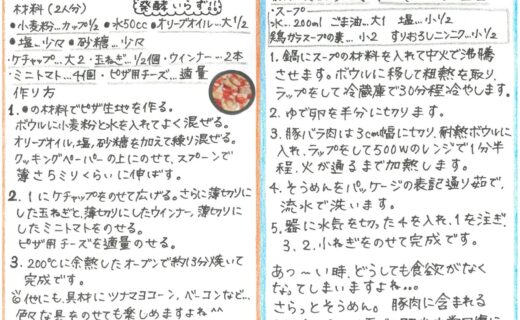 材料(2人分)
発酵いらず!!
●小麦粉…カップ1/2 ●水50cc ●オリーブオイル…大1/2
●塩…少々 ●砂糖…少々
・ケチャップ…大2・玉ねぎ…1/2個・ウインナー…2本
・ミニトマト…4個・ピザ用チーズ…適量
作り方
1. ●の材料でピザ生地を作る。
ボウルに小麦粉と水を入れてよく混ぜる。
オリーブオイル、塩、砂糖を加えて練り混ぜる。
クッキングペーパーの上にのせて、スプーンで
薄さ5ミリくらいに伸ばす。
2. 1にケチャップをのせて広げる。さらに薄切りに
した玉ねぎと、薄切りにしたウインナー、薄切りに
したミニトマトをのせる。
ピザ用チーズを適量のせる。
3. 200℃に余熱したオーブンで約13分焼いて
完成です。
※他にも、具材にツナマヨコーン、ベーコンなど…
色々な具をのせても楽しめますよね^^
・スープ
水…200ml ごま油…大1 塩…小1/2
鶏ガラスープの素…小2 すりおろしニンニク…小1/2
1. 鍋にスープの材料を入れて中火で沸騰
させます。ボウルに移して粗熱を取り、
ラップをして冷蔵庫で30分程冷やします。
2. ゆで卵を半分に切ります。
3. 豚バラ肉は3cm幅に切り、耐熱ボウルに
入れ、ラップをして500Wのレンジで1分半
程、火が通るまで加熱します。
4. そうめんをパッケージの表記通り茹で、
流水で洗います。
5. 器に水気を切った4を入れ、1を注ぎ、
3、2、小ねぎをのせて完成です。
あっ〜い時、どうしても食欲がなく
なってしまいますよね…。
さらっとそうめん。豚肉に含まれる